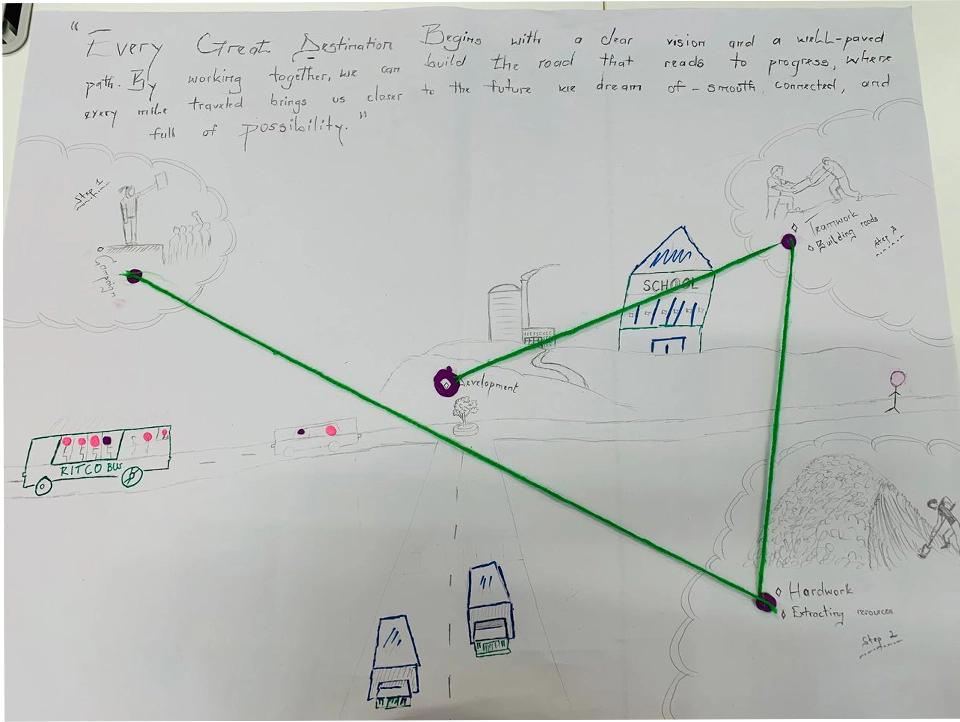 "Every Great Destination Begins with a clear vision and a well-paved
path. By working together, we can build the road that reads to progress, where
every mile traveled brings us closer to the future we dream of - smooth, connected, and
full of possibility."
Step 1
Campaign
Teamwork
Building roads
Step 3
SCHOOL
Development
RITCO BUS
Hardwork
Extracting resources
Step 2